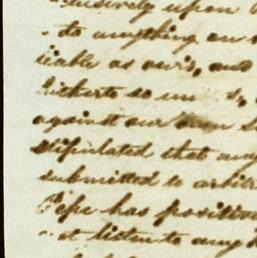 upon
to anything on
liable as our's, and
hitherto so un
against our own
stipulated that any
submitted to arbit
Pepe has positiv
listen to any